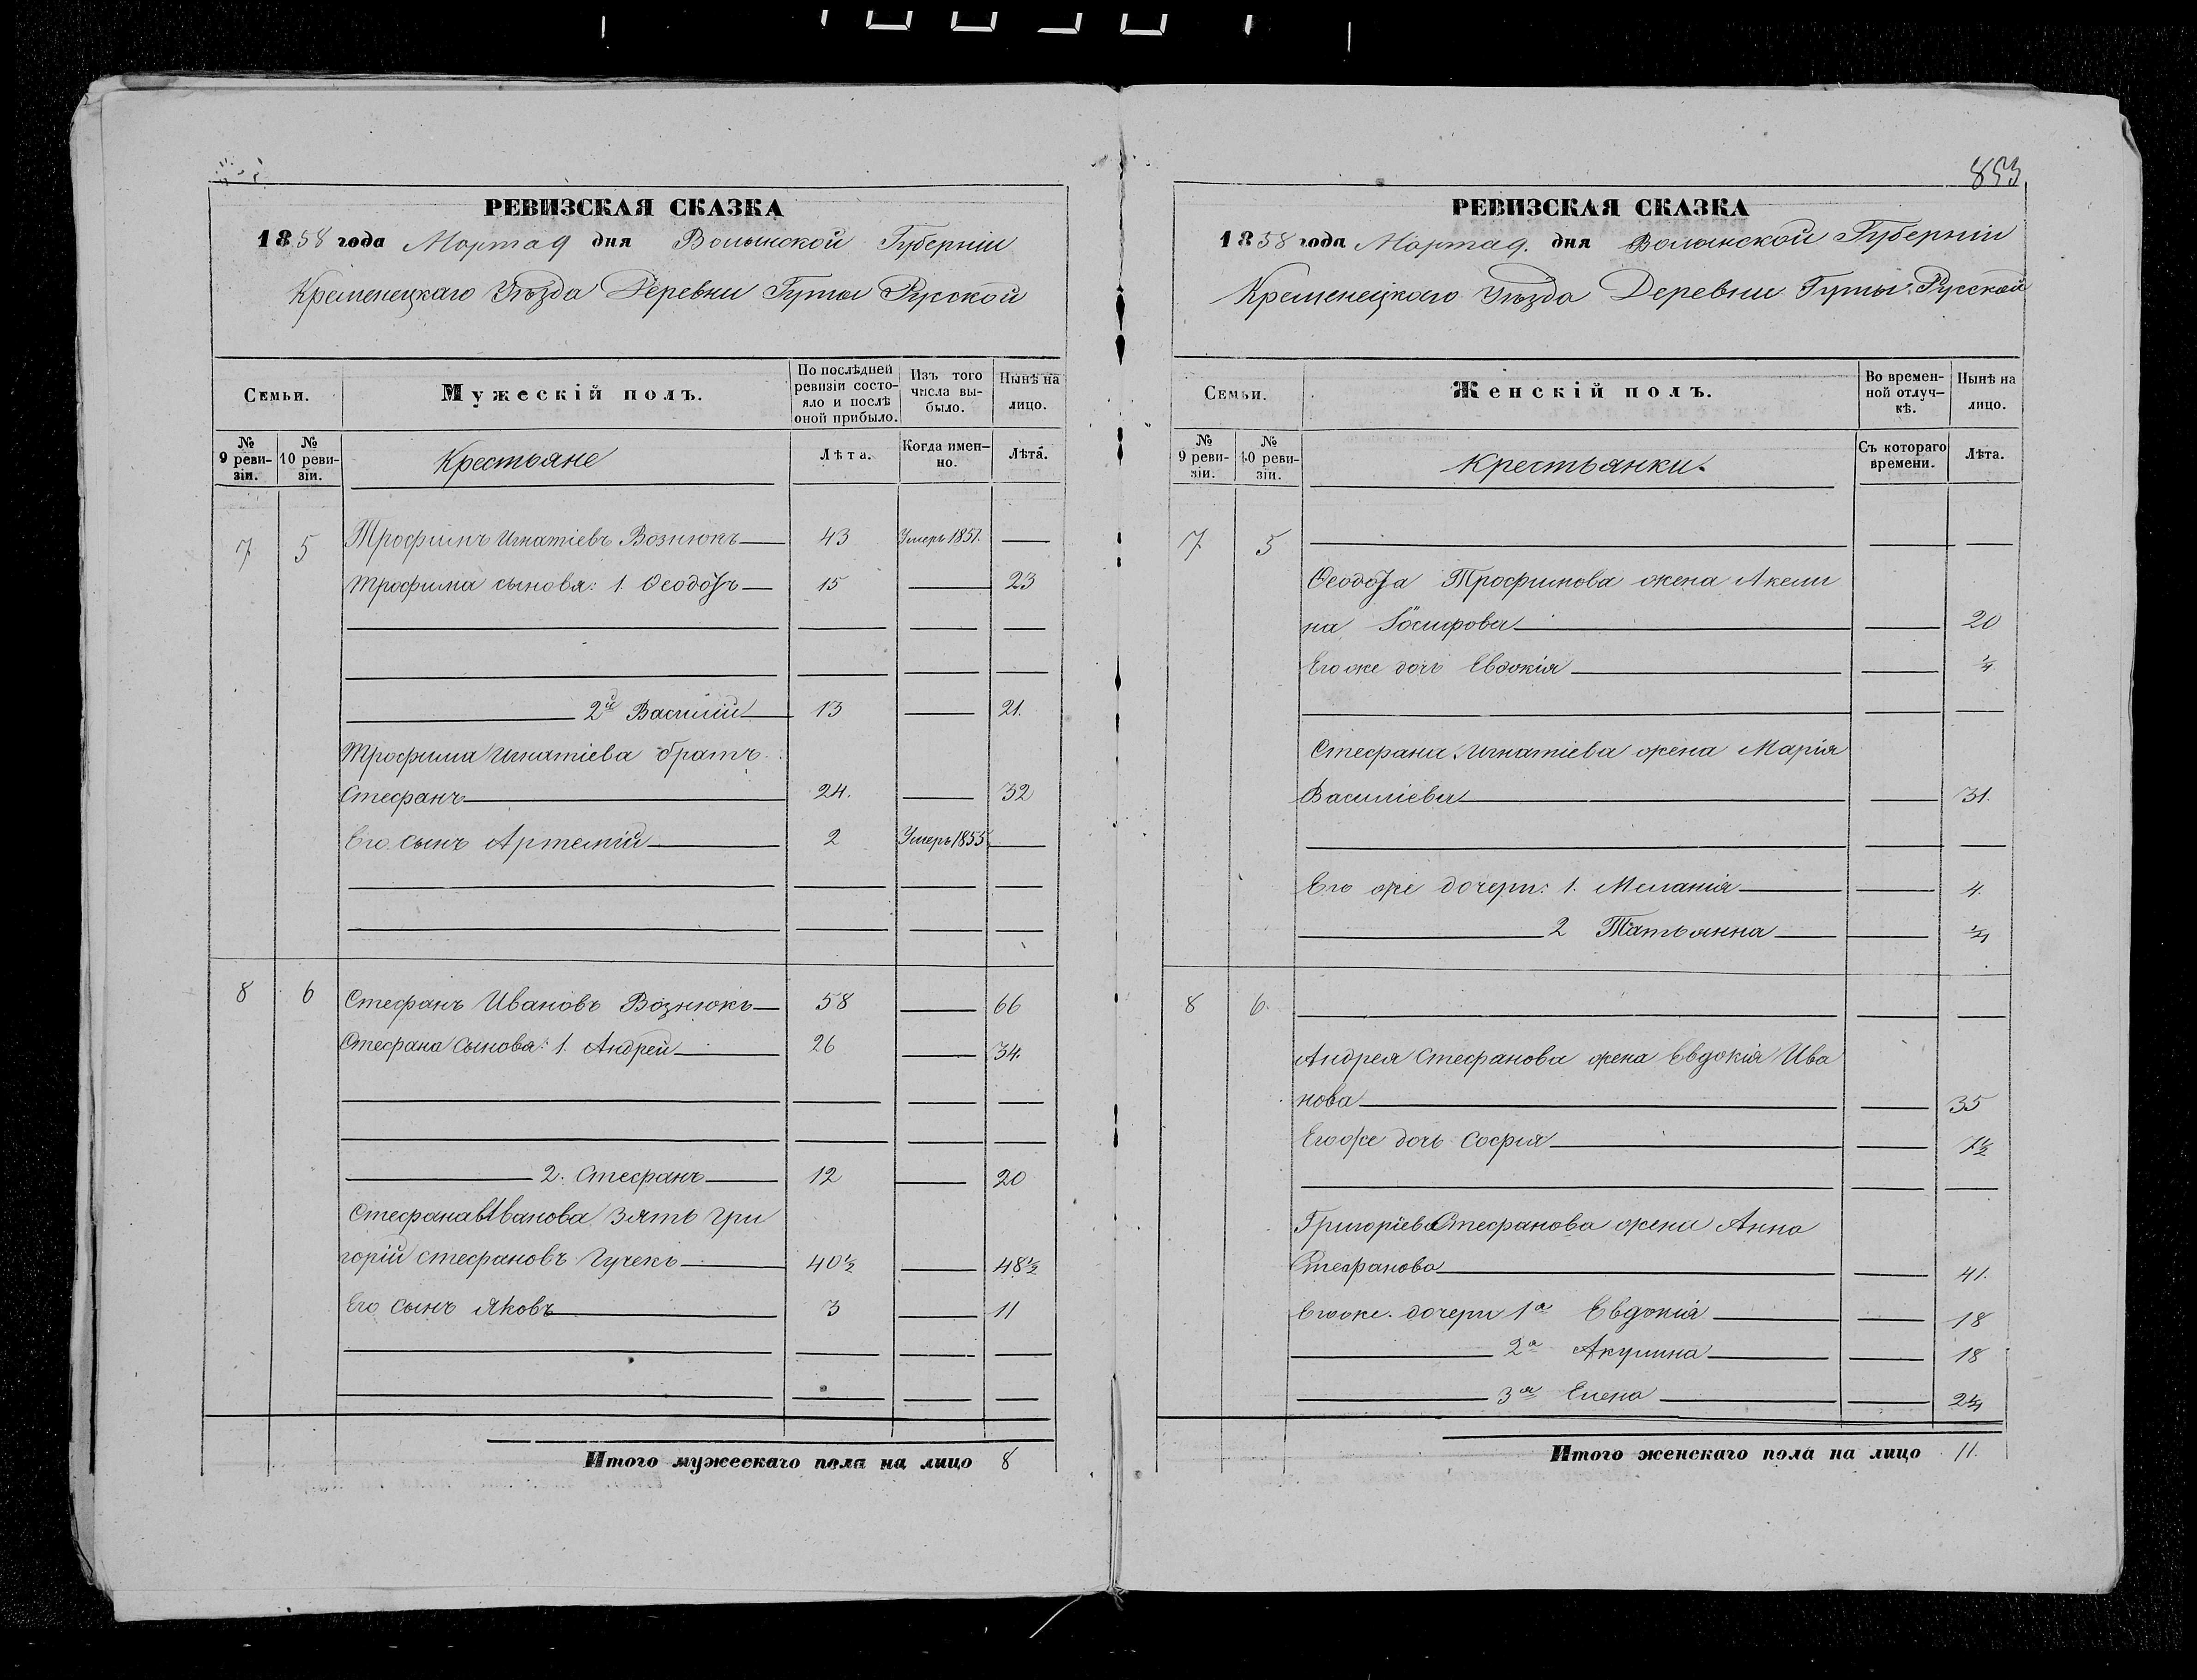 РЕВИЗСКАЯ СКАЗКА
1858 года Марта 9 дня Волынской Губерніи
Кременецкаго Уѣзда Деревни Гуты Руской
Семьи.
Мужескій полъ.
По послѣдней ревизіи состояло и послѣ оной прибыло.
Изъ того числа выбыло.
Нынѣ на лицо.
№ 9 ревизіи.
№ 10 ревизіи.
Крестьяне
Лѣта.
Когда именно.
Лѣта.
7 5 Трофимъ Игнатіевъ Вознюкъ 43 Умеръ 1851.
Трофима сыновя: 1. Ѳеодозъ 15 23
2й Василій 13 21.
Трофима Игнатіева братъ
Стефанъ 24. 32
Его сынъ Артемій 2 Умеръ 1855
8 6 Стефанъ Ивановъ Вознюкъ 58 66
Стефана сыновя: 1. Андрей 26 34.
2. Стефанъ 12 20
Стефана Иванова зять Гри
горій Стефановъ Гучекъ 40½ 48½
Его сынъ Яковъ 3 11
Итого мужескаго пола на лицо 8
853
РЕВИЗСКАЯ СКАЗКА
1858 года Марта 9. дня Волынской Губерніи
Кременецкаго Уѣзда Деревни Гуты Руской
Семьи.
Женскій полъ.
Во временной отлучкѣ.
Нынѣ на лицо.
№ 9 ревизіи.
№ 10 ревизіи.
Крестьянки.
Съ котораго времени.
Лѣта.
7 5
Ѳеодоза Трофимова жена Акели
на Іосифова 20
Его же дочь Евдокія ¼
Стефана Игнатіева жена Марія
Василіева 31.
Его же дочери: 1. Меланія 4.
2 Татьянна ¼
8 6.
Андрея Стефанова жена Евдокія Ива
нова 35
Его же дочь Софія 1½
Григоріева Стефанова жена Анна
Стефанова 41.
Его же дочери 1а Евдокія 18
2а Акулина 18
3я Елена 2¼
Итого женскаго пола на лицо 11.